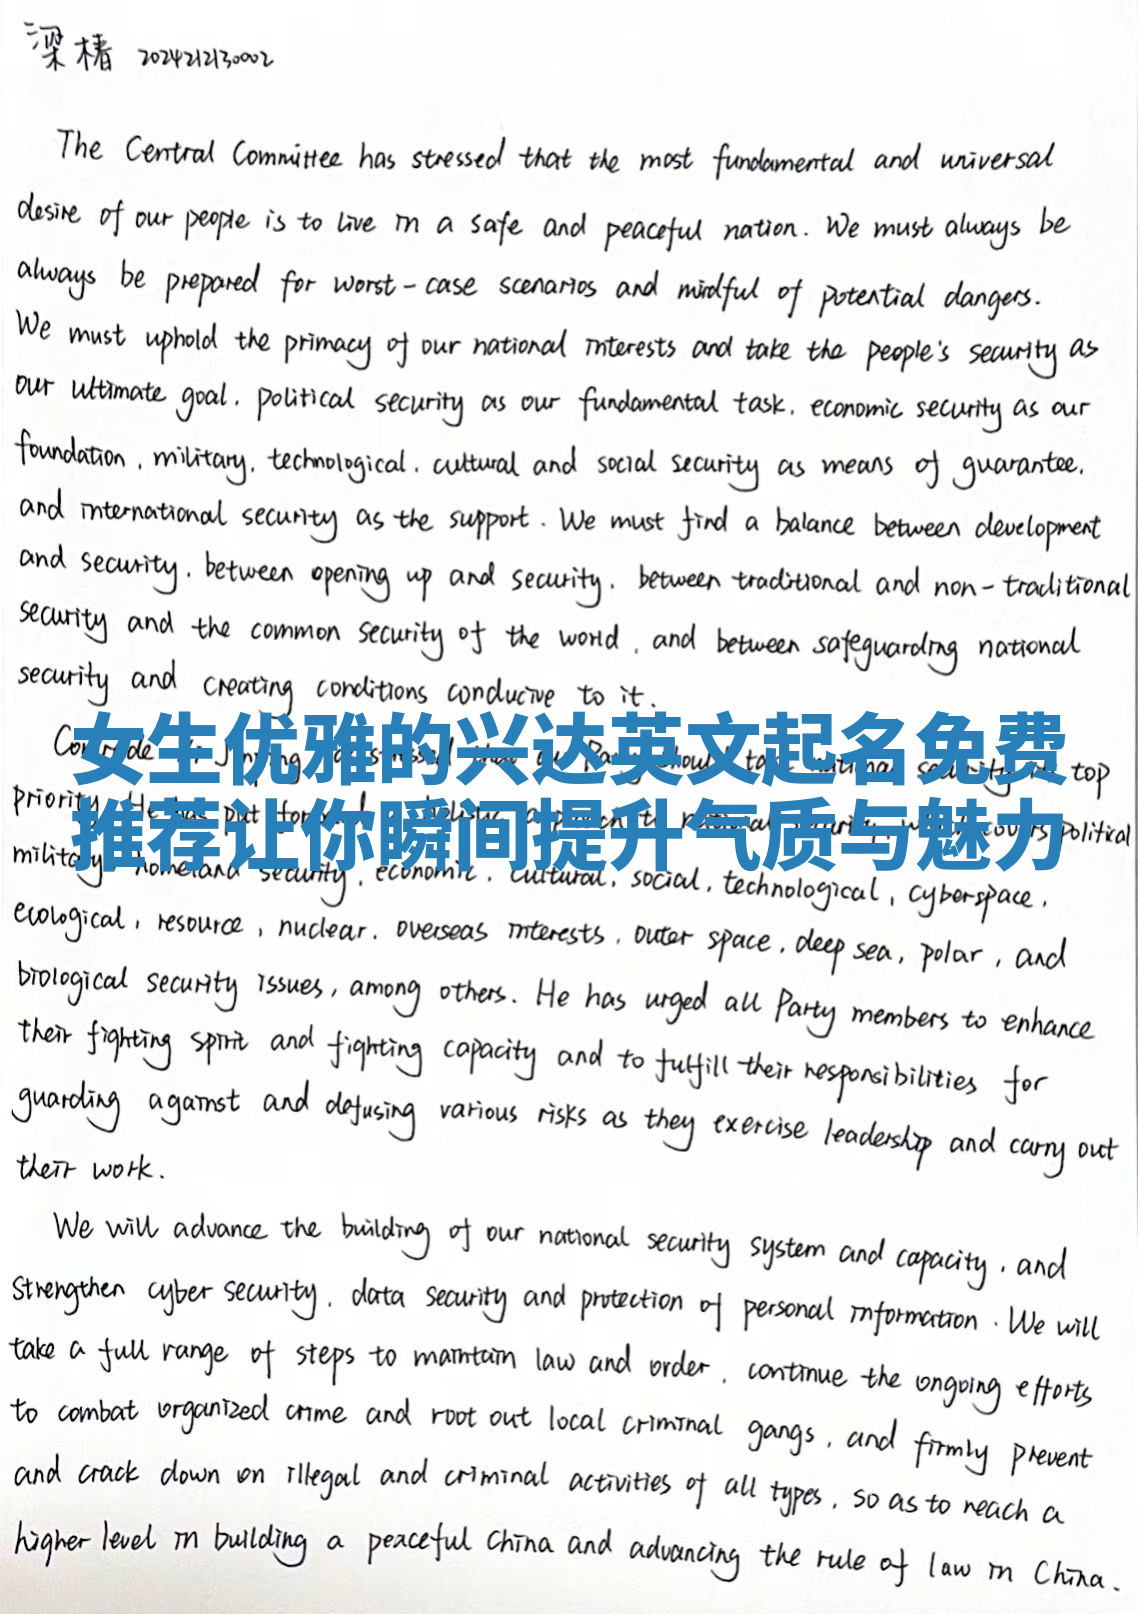 梁椿 2024212130002
The Central Committee has stressed that the most fundamental and universal
desire of our people is to live in a safe and peaceful nation. We must always be
always be prepared for worst-case scenarios and mindful of potential dangers.
We must uphold the primacy of our national interests and take the people's security as
our ultimate goal, political security as our fundamental task, economic security as our
foundation, military, technological, cultural and social security as means of guarantee,
and international security as the support. We must find a balance between development
and security, between opening up and security, between traditional and non-traditional
security and the common security of the world, and between safeguarding national
security and creating conditions conducive to it.
女生优雅的兴达英文起名免费
top
推荐让你瞬间提升气质与魅力
priority. He has put covers political
military, homeland security, economic, cultural, social, technological, cyberspace,
ecological, resource, nuclear, overseas interests, outer space, deep sea, polar, and
biological security issues, among others. He has urged all Party members to enhance
their fighting spirit and fighting capacity and to fulfill their responsibilities for
guarding against and defusing various risks as they exercise leadership and carry out
their work.
We will advance the building of our national security system and capacity, and
strengthen cyber security, data security and protection of personal information. We will
take a full range of steps to maintain law and order, continue the ongoing efforts
to combat organized crime and root out local criminal gangs, and firmly prevent
and crack down on illegal and criminal activities of all types, so as to reach a
higher level in building a peaceful China and advancing the rule of law in China.